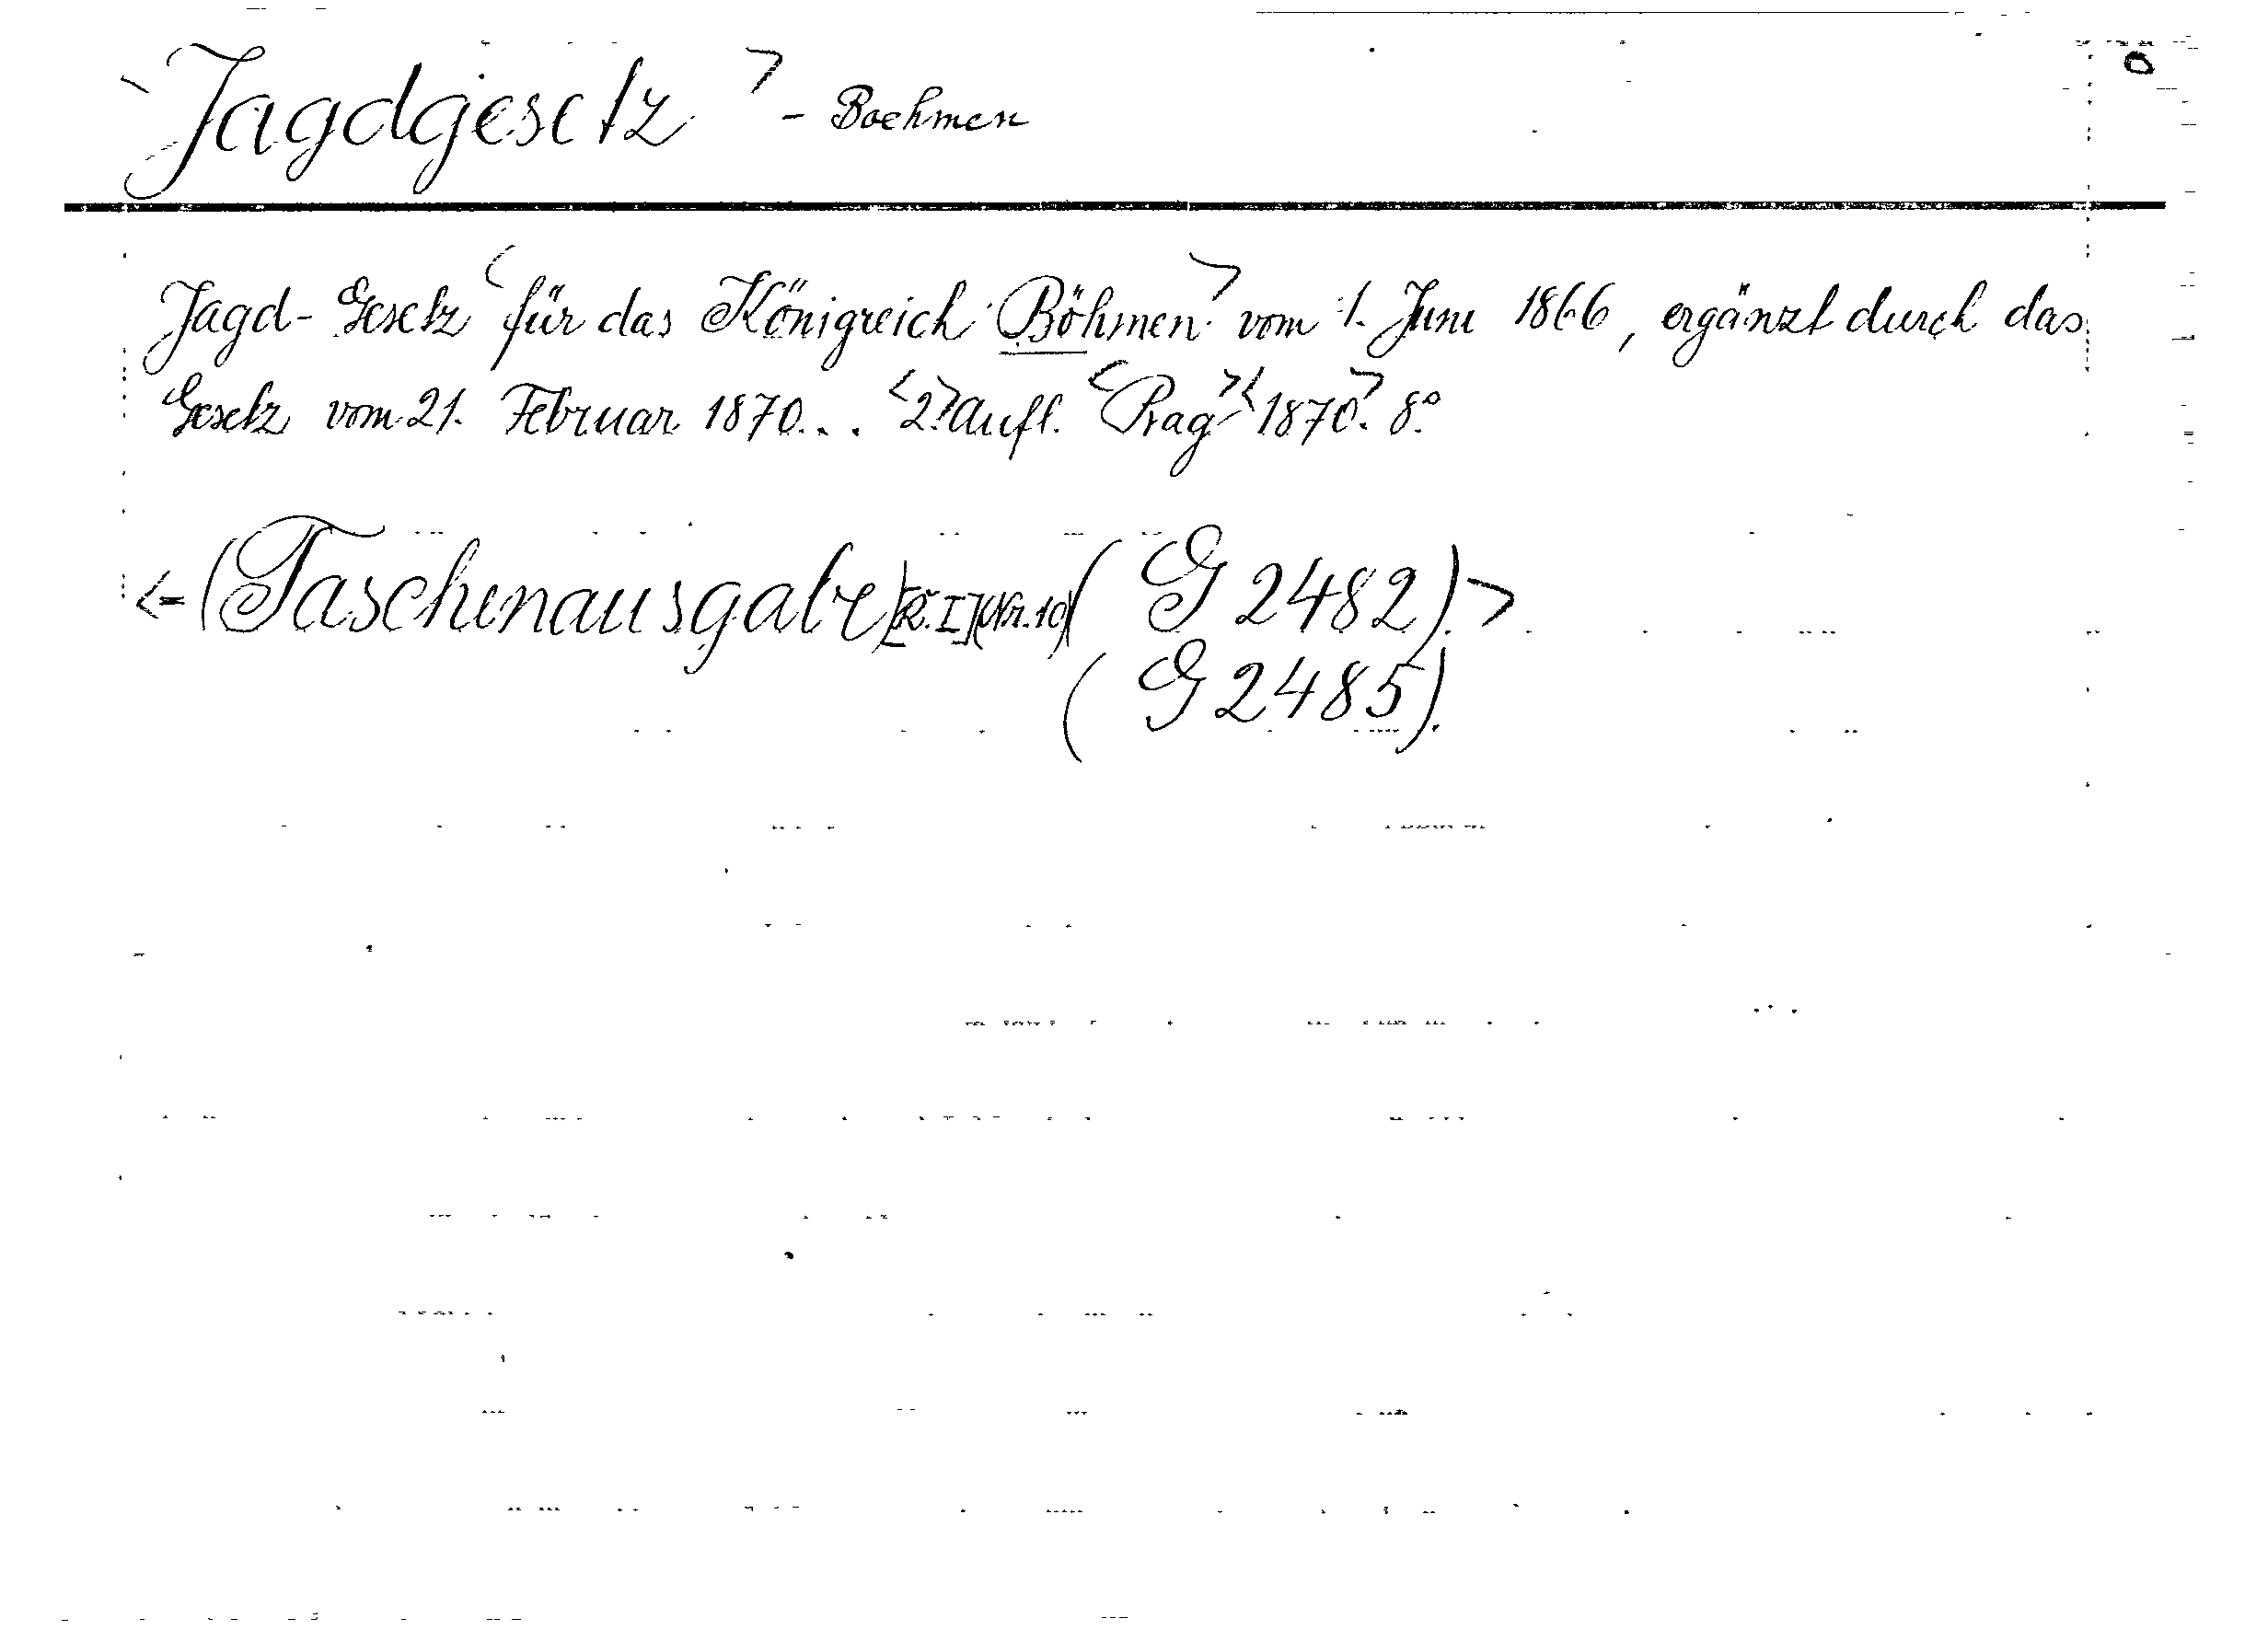 <Jagdgesetz> - Boehmen
Jagd-Gesetz <für das Königreich Böhmen> vom 1. Juni 1866, ergänzt durch das
Gesetz vom 21. Februar 1870... <2.> Aufl. <Prag> <1870>. 8°
<=(Taschenausgabe) [R. I] (Nr. 10) (G 2482).>
(G 2485).